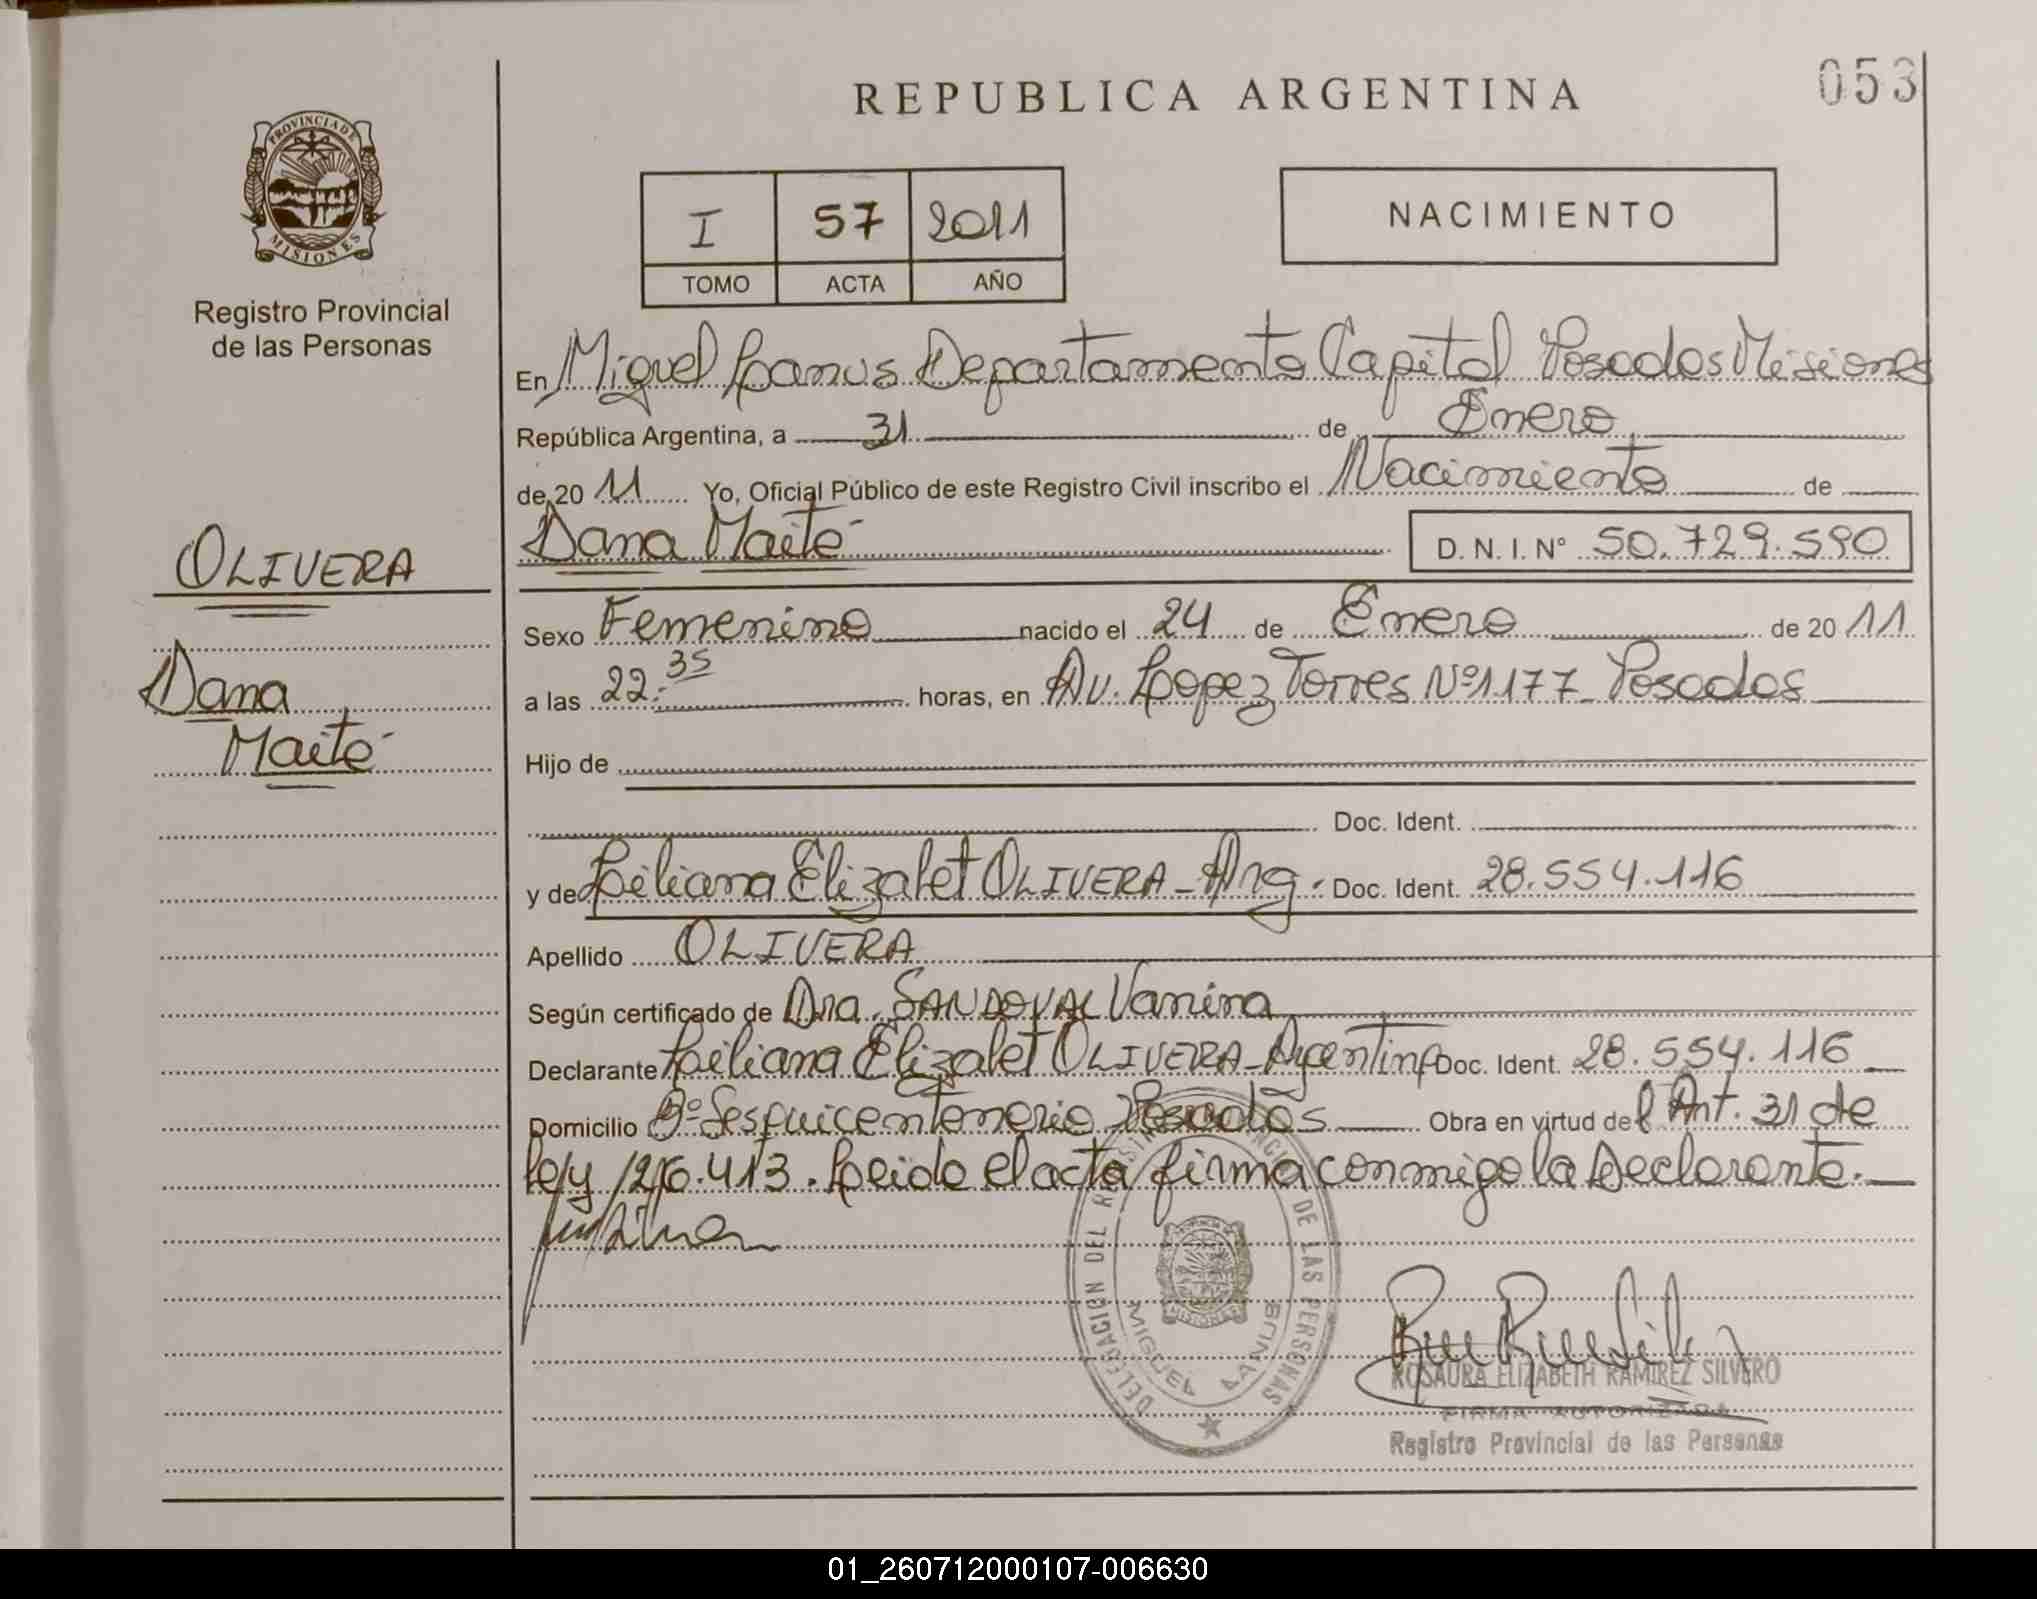 REPUBLICA ARGENTINA
053
PROVINCIA DE
MISIONES
Registro Provincial
de las Personas
I 57 2011
TOMO ACTA AÑO
NACIMIENTO
En Miguel Lanus Departamento Capital Posadas Misiones
República Argentina, a 31 de Enero
de 20 11 Yo, Oficial Público de este Registro Civil inscribo el Nacimiento de
Dana Maité D. N. I. Nº 50.729.590
OLIVERA
Dana
Maité
Sexo Femenino nacido el 24 de Enero de 20 11
a las 22:35 horas, en Av. Lopez Torres Nº 1177 Posadas
Hijo de
Doc. Ident.
y de Liliana Elizabet OLIVERA - Arg. Doc. Ident. 28.554.116
Apellido OLIVERA
Según certificado de Dra. SANDOVAL Vanina
Declarante Liliana Elizabet OLIVERA - Argentina Doc. Ident. 28.554.116
Domicilio Bº Sesquicentenario Posadas Obra en virtud del Art. 31 de
ley 26.413. Leida el acta firma conmigo la Declarante.
DELEGACION DEL REGISTRO PROVINCIAL DE LAS PERSONAS
MIGUEL LANUS
ROSAURA ELIZABETH RAMIREZ SILVERO
FIRMA AUTORIZADA
Registro Provincial de las Personas
01_260712000107-006630